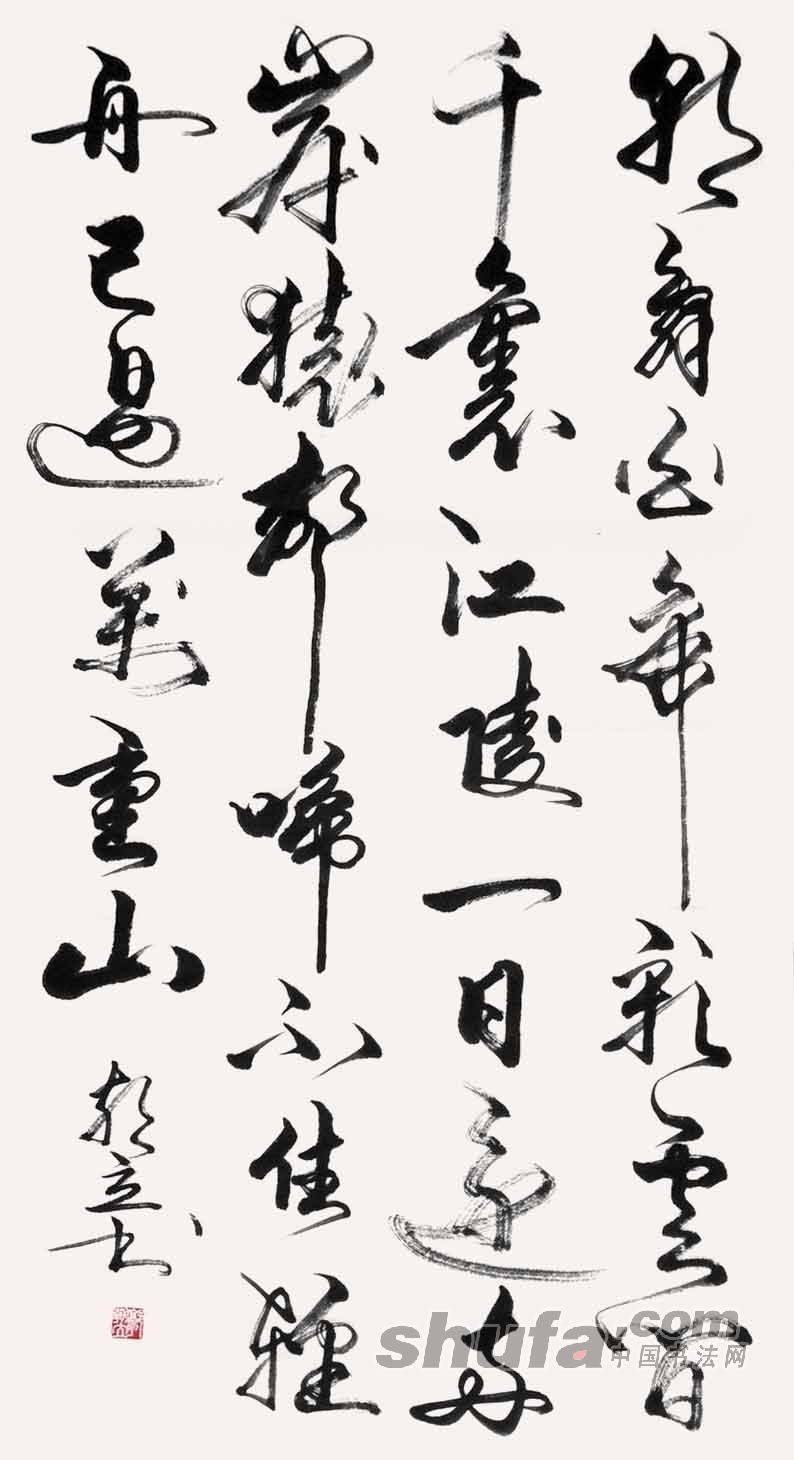 朝辭白帝彩雲間
千裏江陵一日還兩
岸猿聲啼不住輕
舟已過萬重山
立书
shufa.com
中国书法网